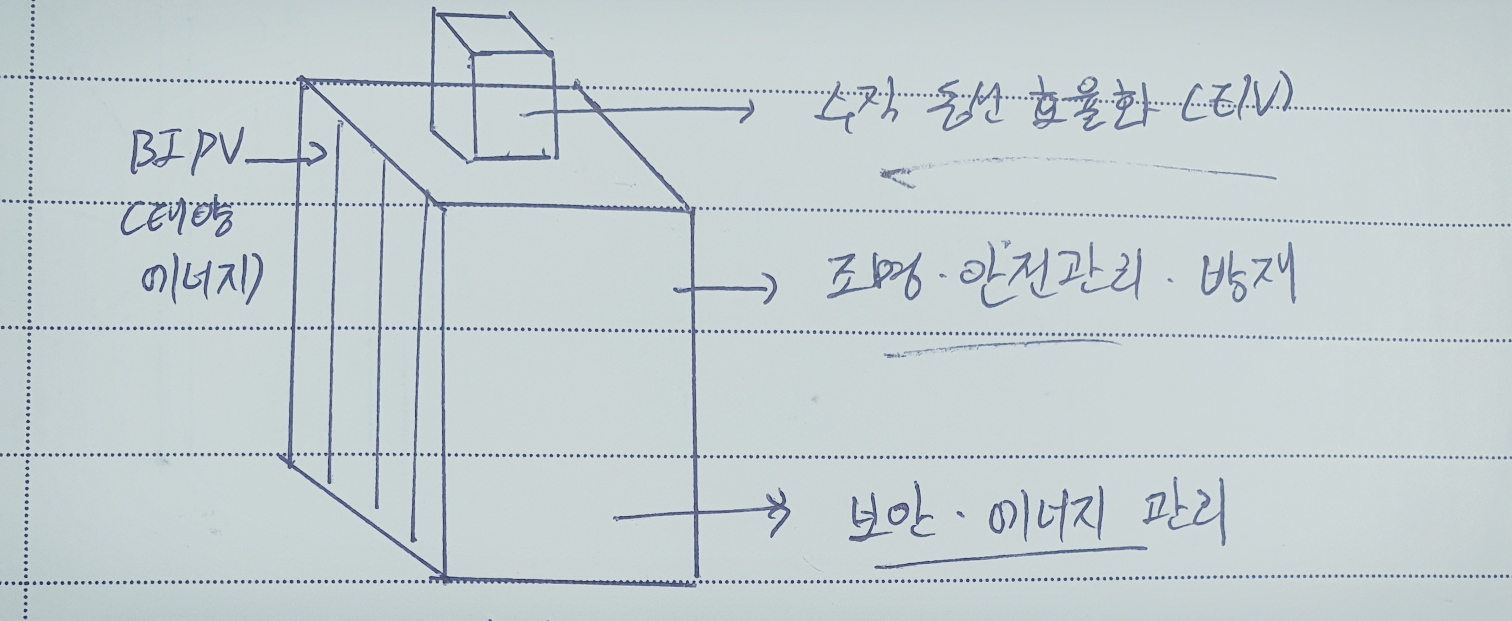 수직 동선 효율화 (E/V)
BIPV
(태양
에너지)
조명 · 안전관리 · 방재
보안 · 에너지 관리